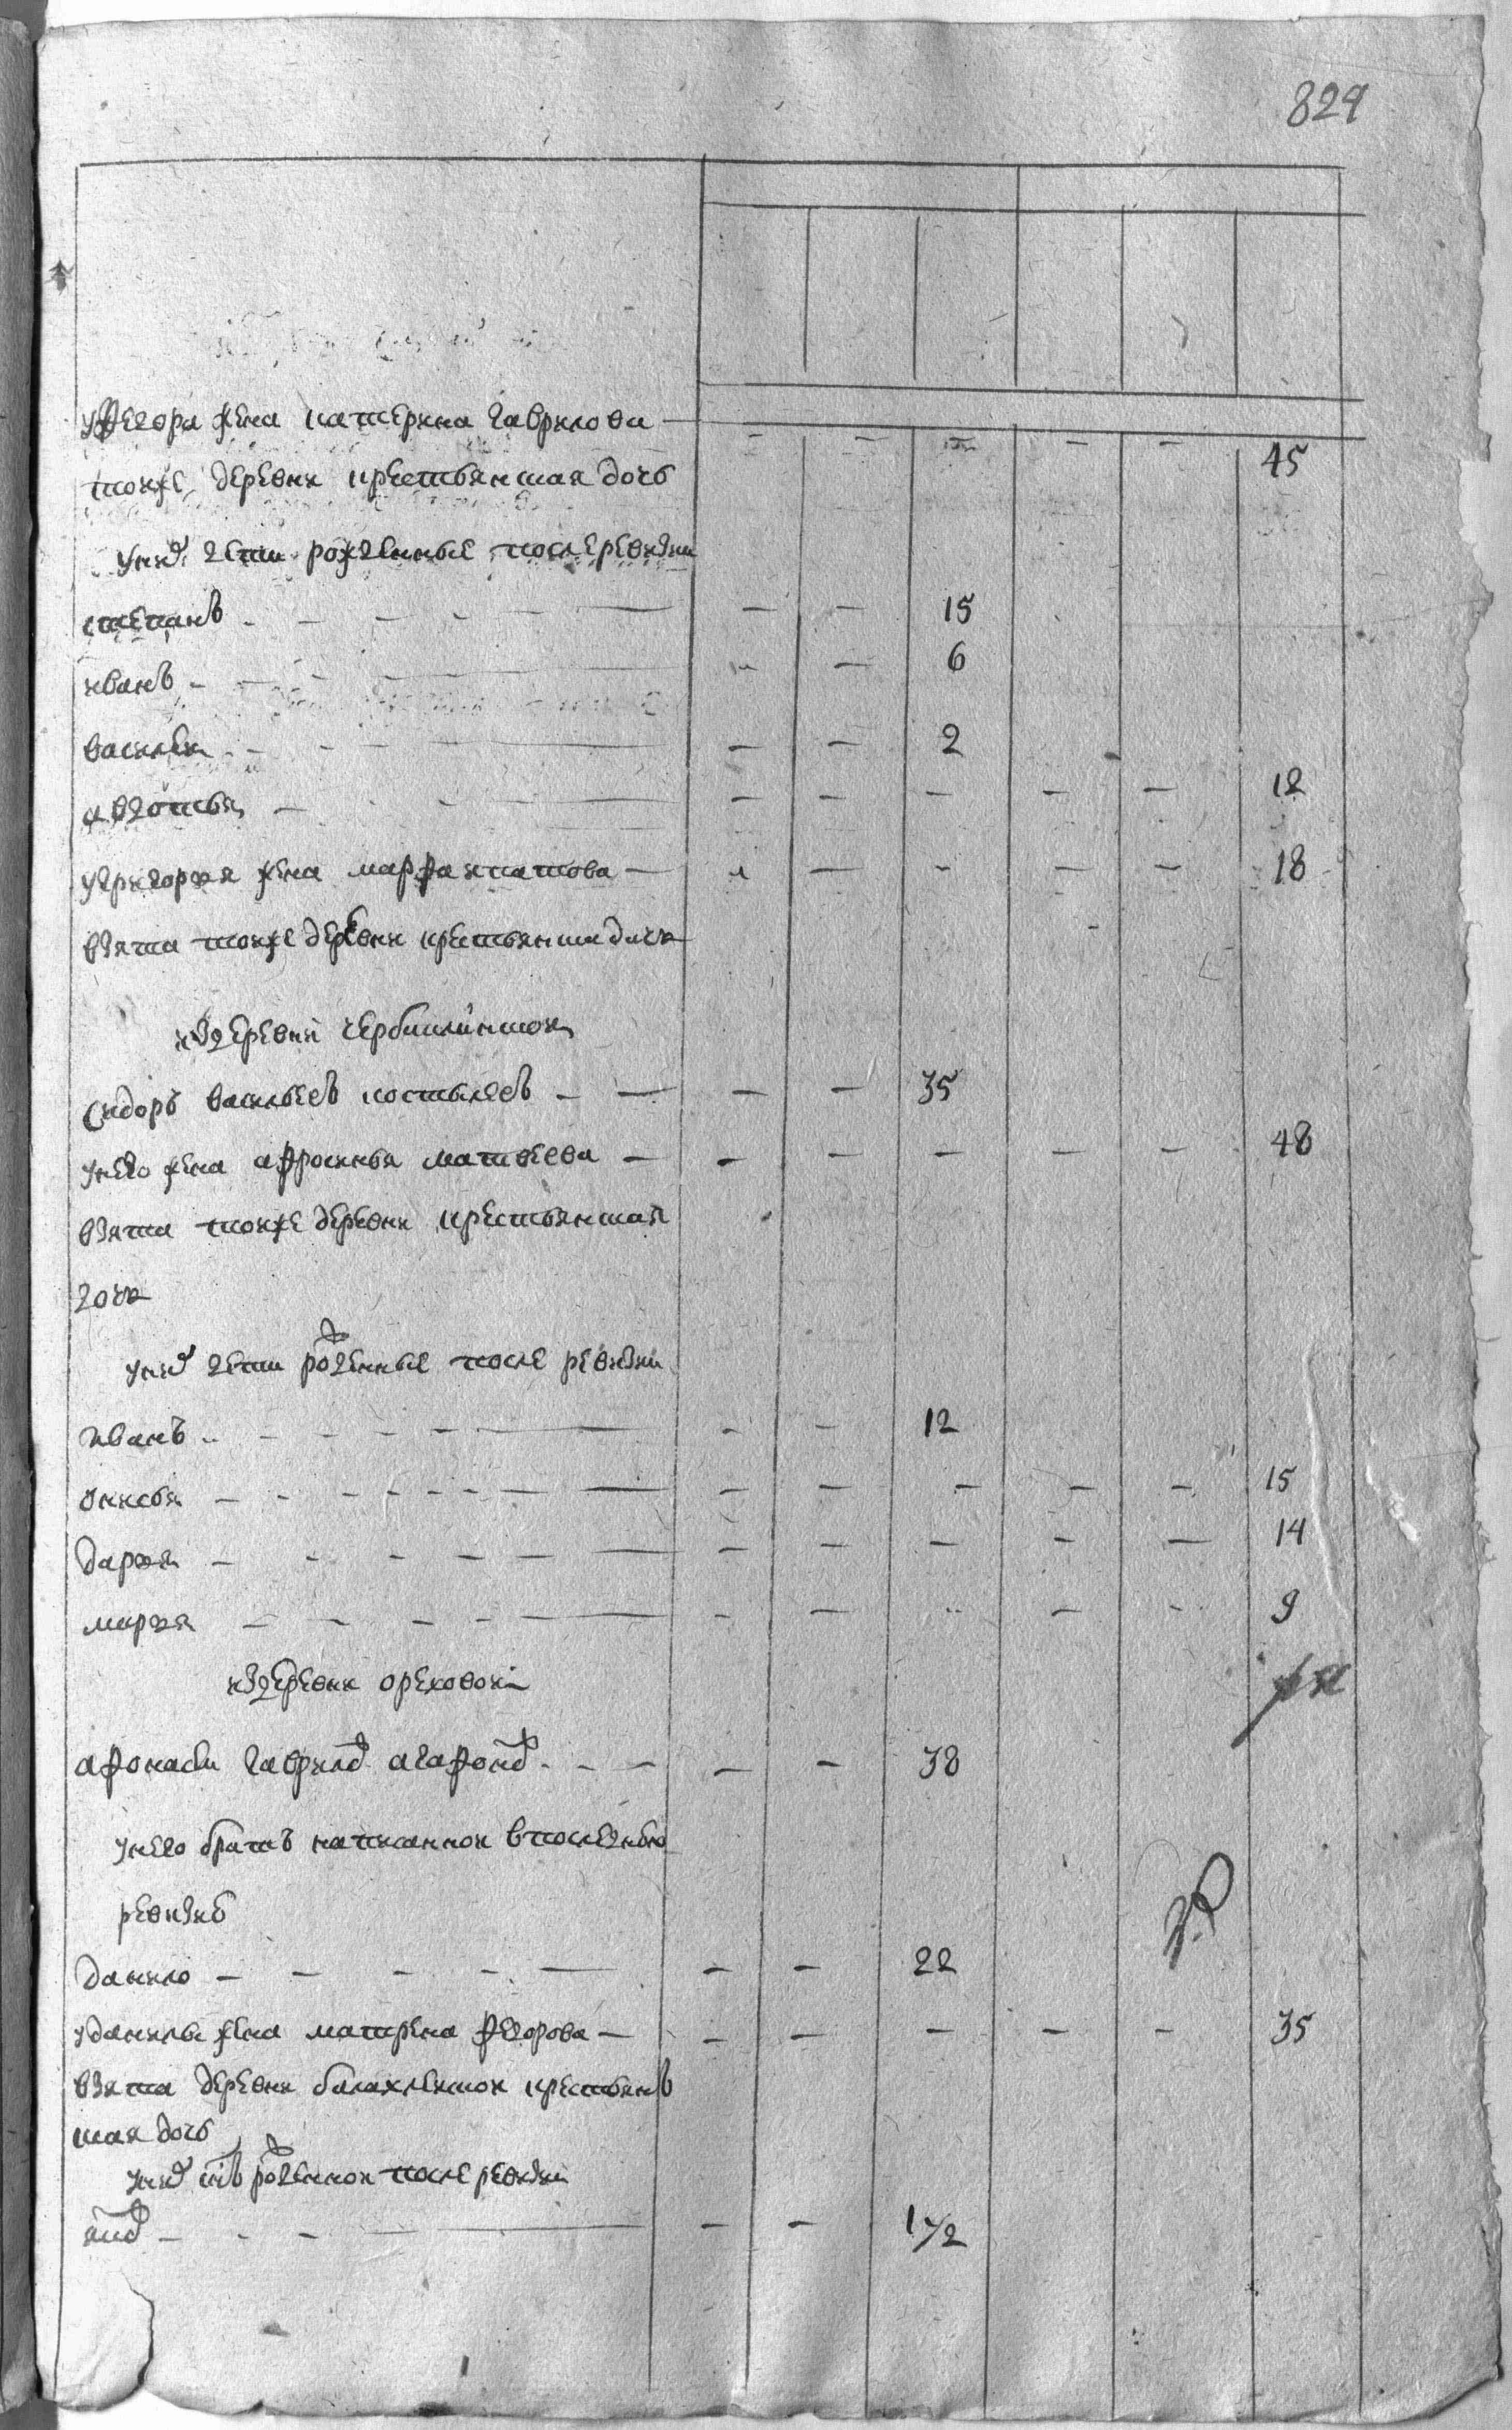 829
уфедора жена катерина гаврилова — - - - - - 45
тоеже деревни крестьянская дочь
уних дети рожденные послеревизии
степанъ - - 15
иванъ - - 6
василеи - - 2
авдотья - - - - - 12
угригорья жена марфа ипатова - - - - - 18
взята тоеже деревни крестьянска дочи
издеревни
сидоръ васильевъ костылевъ - - 35
унего жена афросинья матвеева - - - - - 48
взята тоеже деревни крестьянская
дочи
уних дети рожденные после ревизии
иванъ - - 12
онисья - - - - - 15
дарья - - - - - 14
марья - - - - - 9
издеревни ореховои
афонасеи гаврилов агафонов - - 38
унего братъ написаннои впоследнюю
ревизию
данило - - 22
уданилы жена матрена федорова - - - - - 35
взята деревни балахлеискои крестьянъ
ская дочь
уних снъ рожденнои после ревизии
яков - - 1 1/2